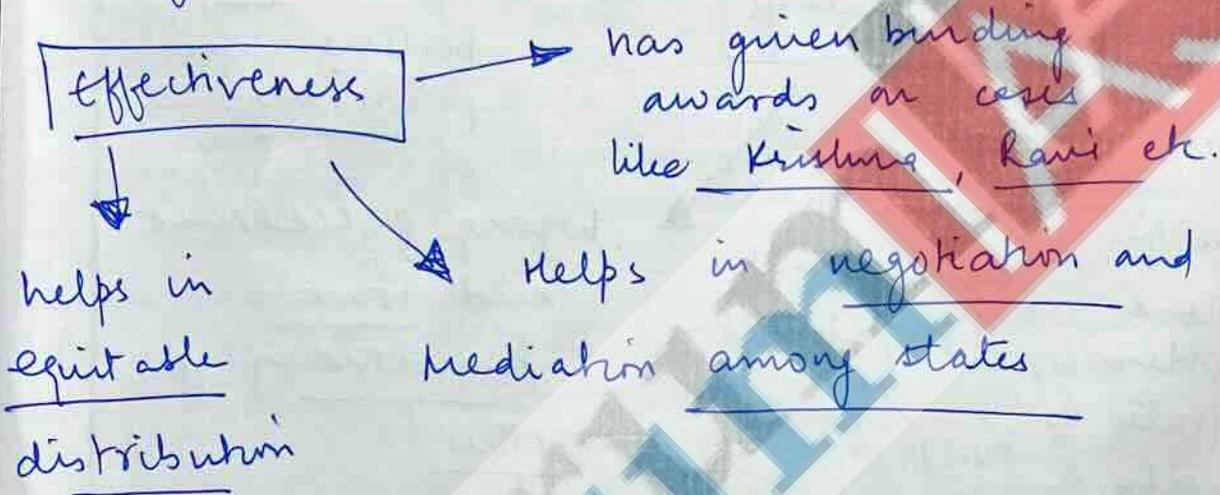 Effectiveness
has given binding
awards on cases
like Krishna, Ravi etc.
helps in
equitable
distribution
Helps in negotiation and
Mediation among states